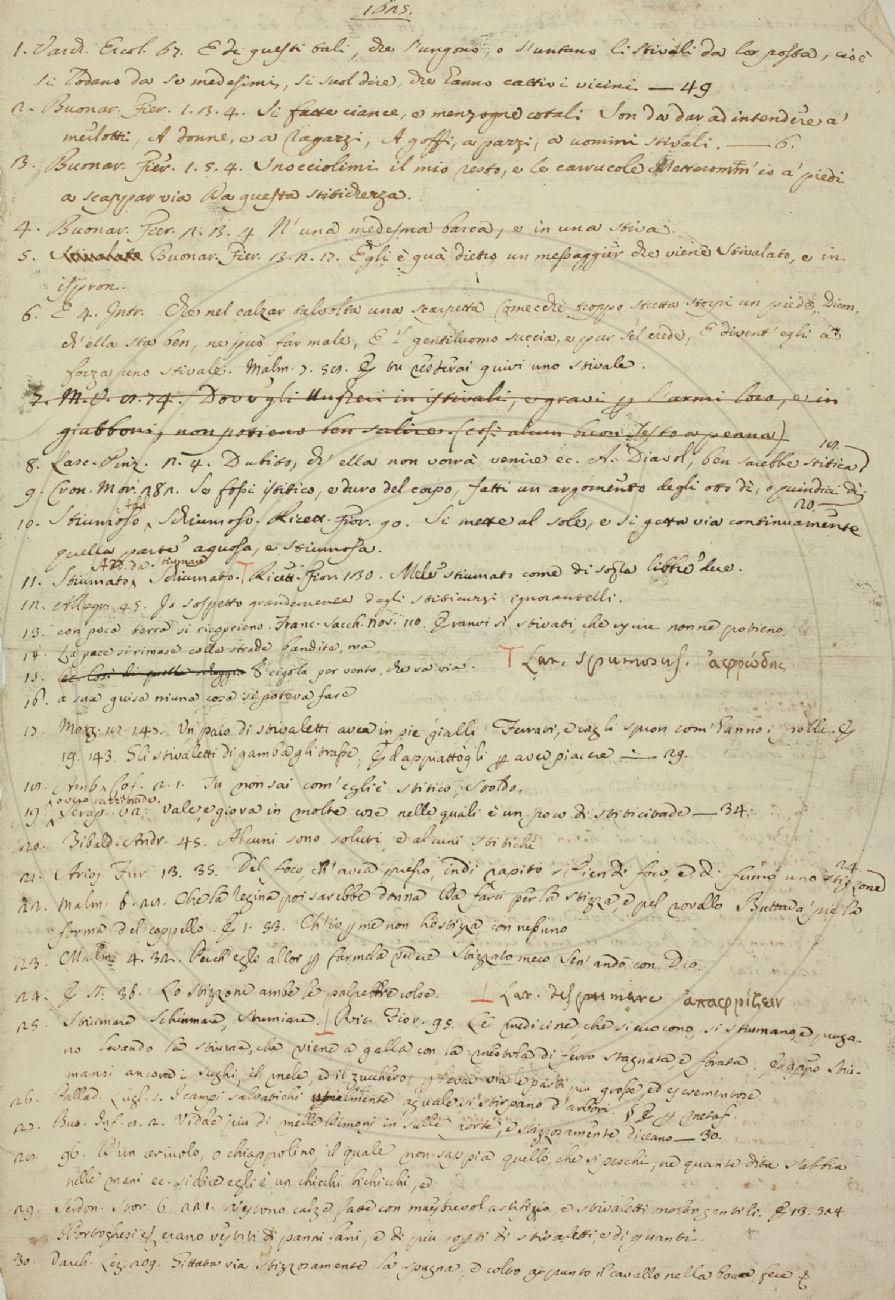 1. Varch. Ercol. 67. E di questi tali, che s'ungono, o s'untano li stivali da lor posta, cioè
si lodano da se medesimi, si suol dire, che hanno cattivi vicini — 49
2. Buonar. Fier. 1. 3. 4. Si fatte ciance, e menzogne cotali Son da dar ad intendere a'
merlotti, A donne, e a ragazzi, A goffi, a pazzi, a uomini stivali. — 6.
3. Buonar. Fier. 1. 5. 4. Snocciolimi il mio resto, e le carrucole io a' piedi
a scappar via Da questa stitichezza.
4. Buonar. Fier. 2. 3. 4 N'una medesma barca, e in una stiva.
5. Buonar. Fier. 3. 2. 17. Egli è quà dietro un messaggier che viene Stivalato, e in
ispron.
6. E 4. Intr. Che nel calzar talvolta una scarpetta Comecchè troppo stretta storpi un piede, Dicon,
ch'ella sta ben, ne può far male, E 'l gentiluomo succia, e pur sel crede, E divent' egli a
forza uno stivale. Malm. 7. 59. E tu resterai quivi uno stivale.
7. M. V. 9. 74. Dove gli Ungheri in istivali, e gravi p l'armi loro, e in
giubboni, non potieno ben salire. (così alcun buon Testo a penna)
8. Lasc. Pinz. 2. 4. Dubito, ch'ella non vorrà venire ec. A. Diavol, ben sarebbe stitica) 18
9. Cron. Mor. 282. Se fossi istitico, e duro del corpo, fatti un argomento degli otto dì, o quindici dì
10. Stiumoso Schiumoso. Ricett. Fior. 90. Si mette al sole, e si getta via continuamente
quella parte aquosa, e stiumosa.
11. Stiumato Add. da stiumare Schiumato. Ricett. Fior. 130. Mele stiumato come di sopra libbre due.
12. Allegr. 45. Io sospetto grandemente degli stiticuzzi ignorantelli.
13. con poca terra si ricoprieno. Franc. Sacch. nov. 110. Eranvi sì stivati, che uscire non ne potieno
14. La pace si rimase colle strade bandite, ma
15. cigola per vento, che va via. Lat. spumosus. ἀφρώδης
16. a sua guisa niuna cosa si poteva fare
17. Morg. 142. Un paio di stivaletti avea in piè gialli Ferrati, e cogli spron com' hanno i E
19. 143. Gli stivaletti di gamba gli trasse, E rappiattògli p aver piacere — 29.
18. Amb. Cof. 2. 1. Tu non sai com' egli è stitico,
19. Serap. vale, e giova in molte cose nelle quali è un poco di stiticitade — 34
20. Tibald. Andr. 45. Alcuni sono soluti, ed alcuni stitichi
21. Arios. Fur. 13. 35. Del foco, ch'avea presso, indi rapito Pien di foco, e di fumo uno stizzone 24
22. Malm. 6. 22. Che la Regina poi sarebbe donna Da farci per la stizza, e pel rovello Buttar a piè la
forma del cappello. E 1. 53. Ch'io p me non ho stizza con nessuno
23. Malm. 4. 32. Perch'egli allor p farmela vedere Stizzato meco sen' andò con Dio.
24. E 5. 38. Lo stizzone ambe le palpebre colse. Lat. despumare ἀπαφρίζειν
25. Stiumare Schiumare, Ric. Fior. 95. Le medicine, che si cuocono, si stiumano, e purga-
no levando la stiuma, che viene a galla con la mestola di ferro stagnata e forata. E appo Stiu-
mansi ancora i sughi, il mele, ed il zucchero, p levar via le parti più grosse, ed escrementose.
26. Pallad. Lugl. 1. I campi salvatichi si sterpano d'arbori. § E p metaf.
27. But. Inf. 2. Vidde più di mille Dimonj in sulle porte, e stizzosamente diceano — 30.
28. 96. D'un cervicolo, o chiappolino, il quale non sappia quello, che si peschi, nè quante dita s'abbia
nelle mani ec. si dice egli è un chicchi bichicchi, ed
29. Serdon. Stor. 6. 221. Vestono calze fatte con maestrevol artifizio, e stivaletti molto gentili. E 13. 524
Portoghesi erano vestiti di panni lani, e di più sorti di stivaletti, e di guanti.
30. Varch. Lez. 209. Gittata via stizzosamente la spugna, e colto appunto il cavallo nella bocca, fece